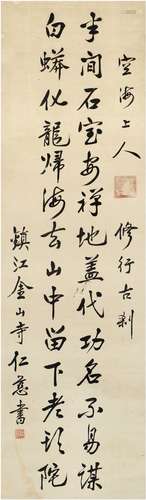 空海上人 修行古刹
半間石室安禅地蓋代功名不易謀
白蟒化龍歸海去山中留下老頭陀
鎮江金山寺仁書